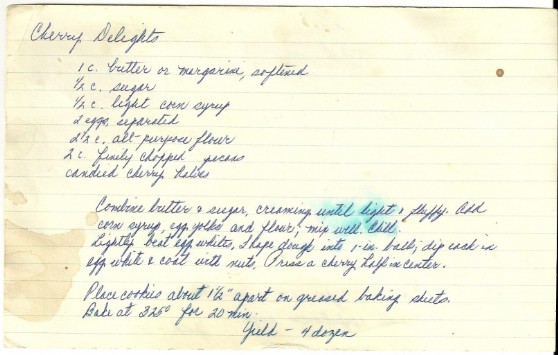 Cherry Delights
1 c. butter or margarine, softened
1/2 c. sugar
1/2 c. light corn syrup
2 eggs, separated
2 1/2 c. all-purpose flour
2 c. finely chopped pecans
candied cherry halves
Combine butter & sugar, creaming until light & fluffy. Add
corn syrup, egg yolks and flour; mix well. Chill.
Lightly beat egg whites. Shape dough into 1-in. balls; dip each in
egg white & coat with nuts. Press a cherry half in center.
Place cookies about 1 1/2" apart on greased baking sheets.
Bake at 325° for 20 min.
Yield - 4 dozen